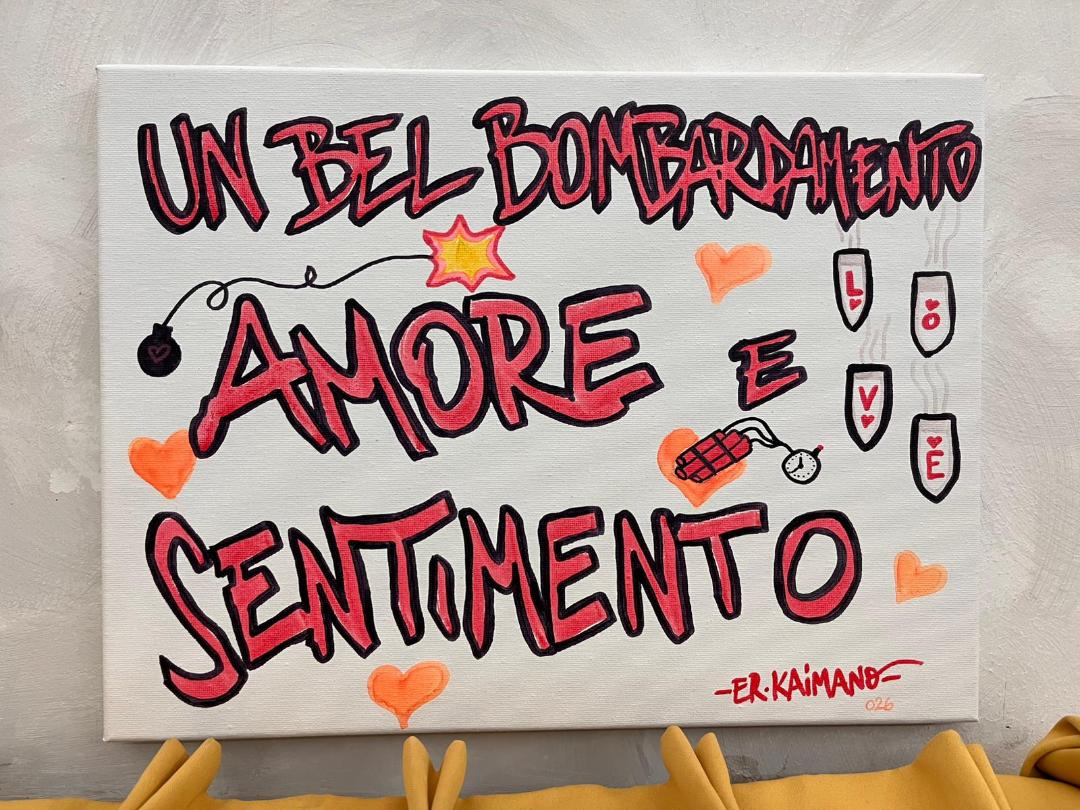 UN BEL BOMBARDAMENTO
AMORE E
L
O
V
E
SENTiMENTO
-ER·KAiMANO-
026